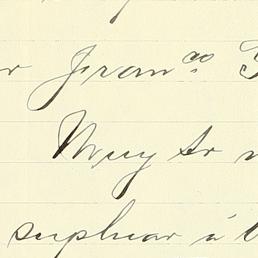 r Franco
Muy Sr
suplicar á